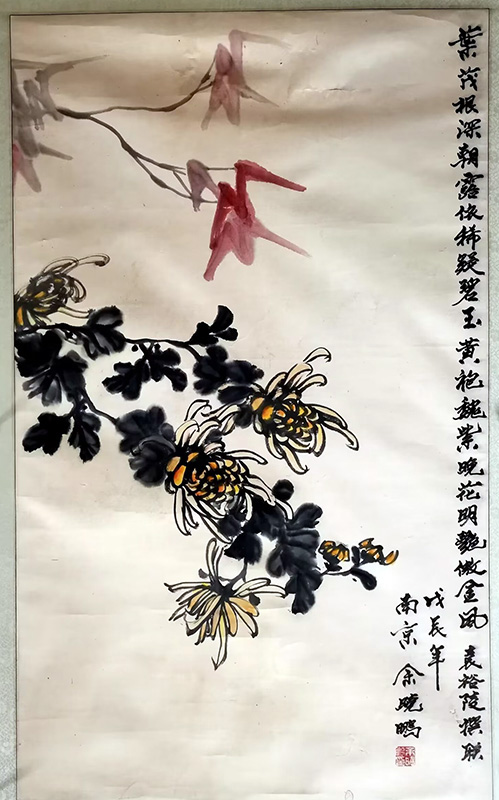 葉茂根深朝露依稀疑碧玉黄袍魏紫晚花明艷傲金风 袁裕陵撰联
戊辰年
南京 余晓鹏